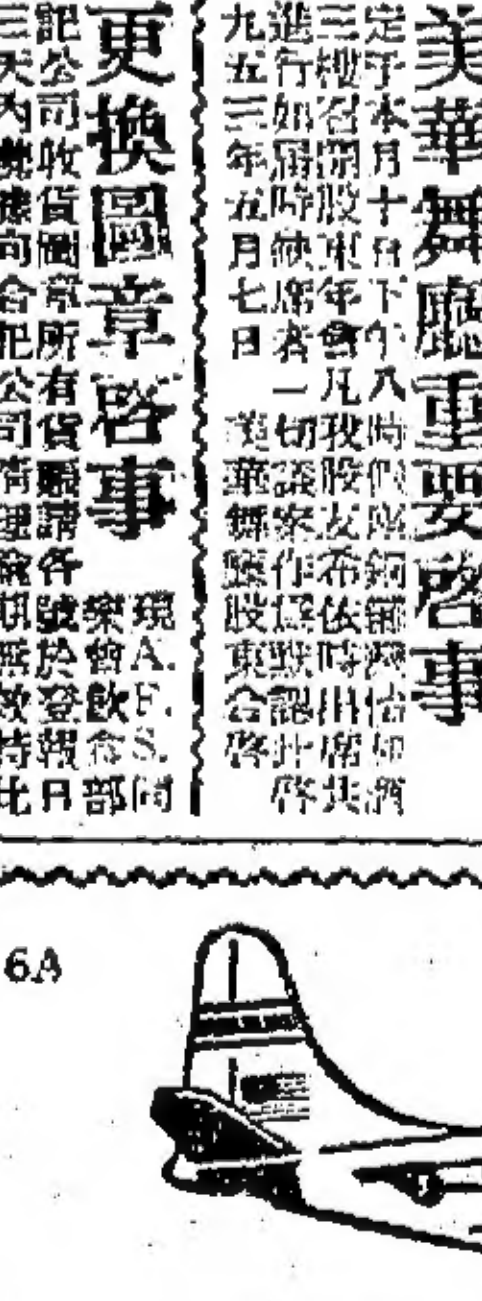 美華舞廳重要啓事
定于本月十日下午八時假座銅鑼灣怡和酒
三樓召開股東年會凡我股友希依時出席共
進行如屆時缺席者一切議案作爲默認此啓
九五三年五月七日 美華舞廳股東合啓
更換圖章啓事
現A.F.S.同
樂會飲食部
記公司收貨圖章所有貨賬請各號於登報日
三天內携據向合記公司清理逾期無效特此
6A